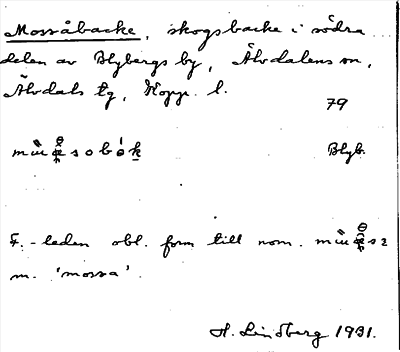 Mossåbacke, skogsbacke i södra
delen av Blybergs by, Älvdalens sn,
Älvdals tg, Kopp. l.
79
Blyb.
F.-leden obl. form till nom.
m. 'mossa'.
H. Lindberg 1931.